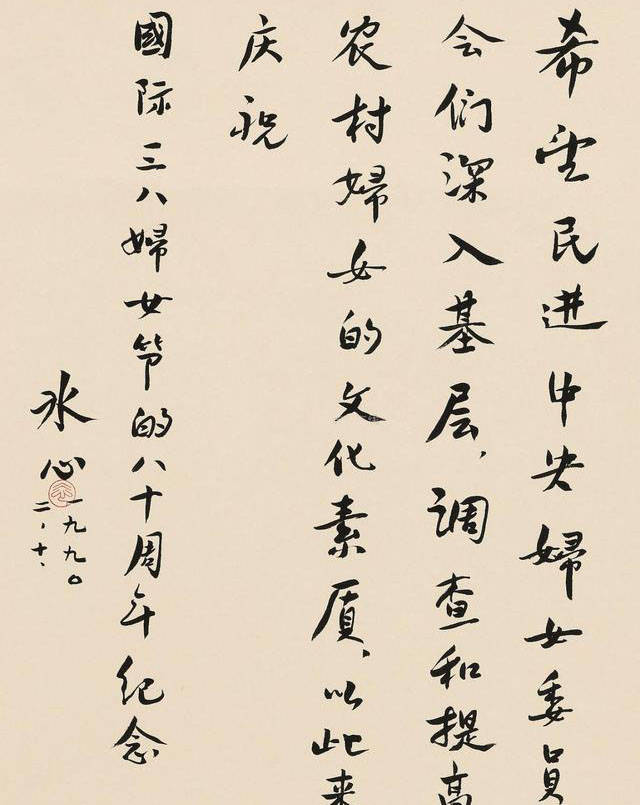 希望民进中央婦女委員
会们深入基层，调查和提高
农村婦女的文化素质，以此来
庆祝
國际三八婦女节的八十周年纪念
冰心
一九九〇
二、十、